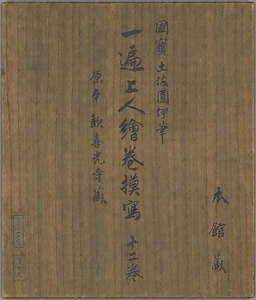 本館蔵
國寳土佐圓伊筆
一遍上人繪巻摸寫 十二巻
原本 歡喜光寺蔵